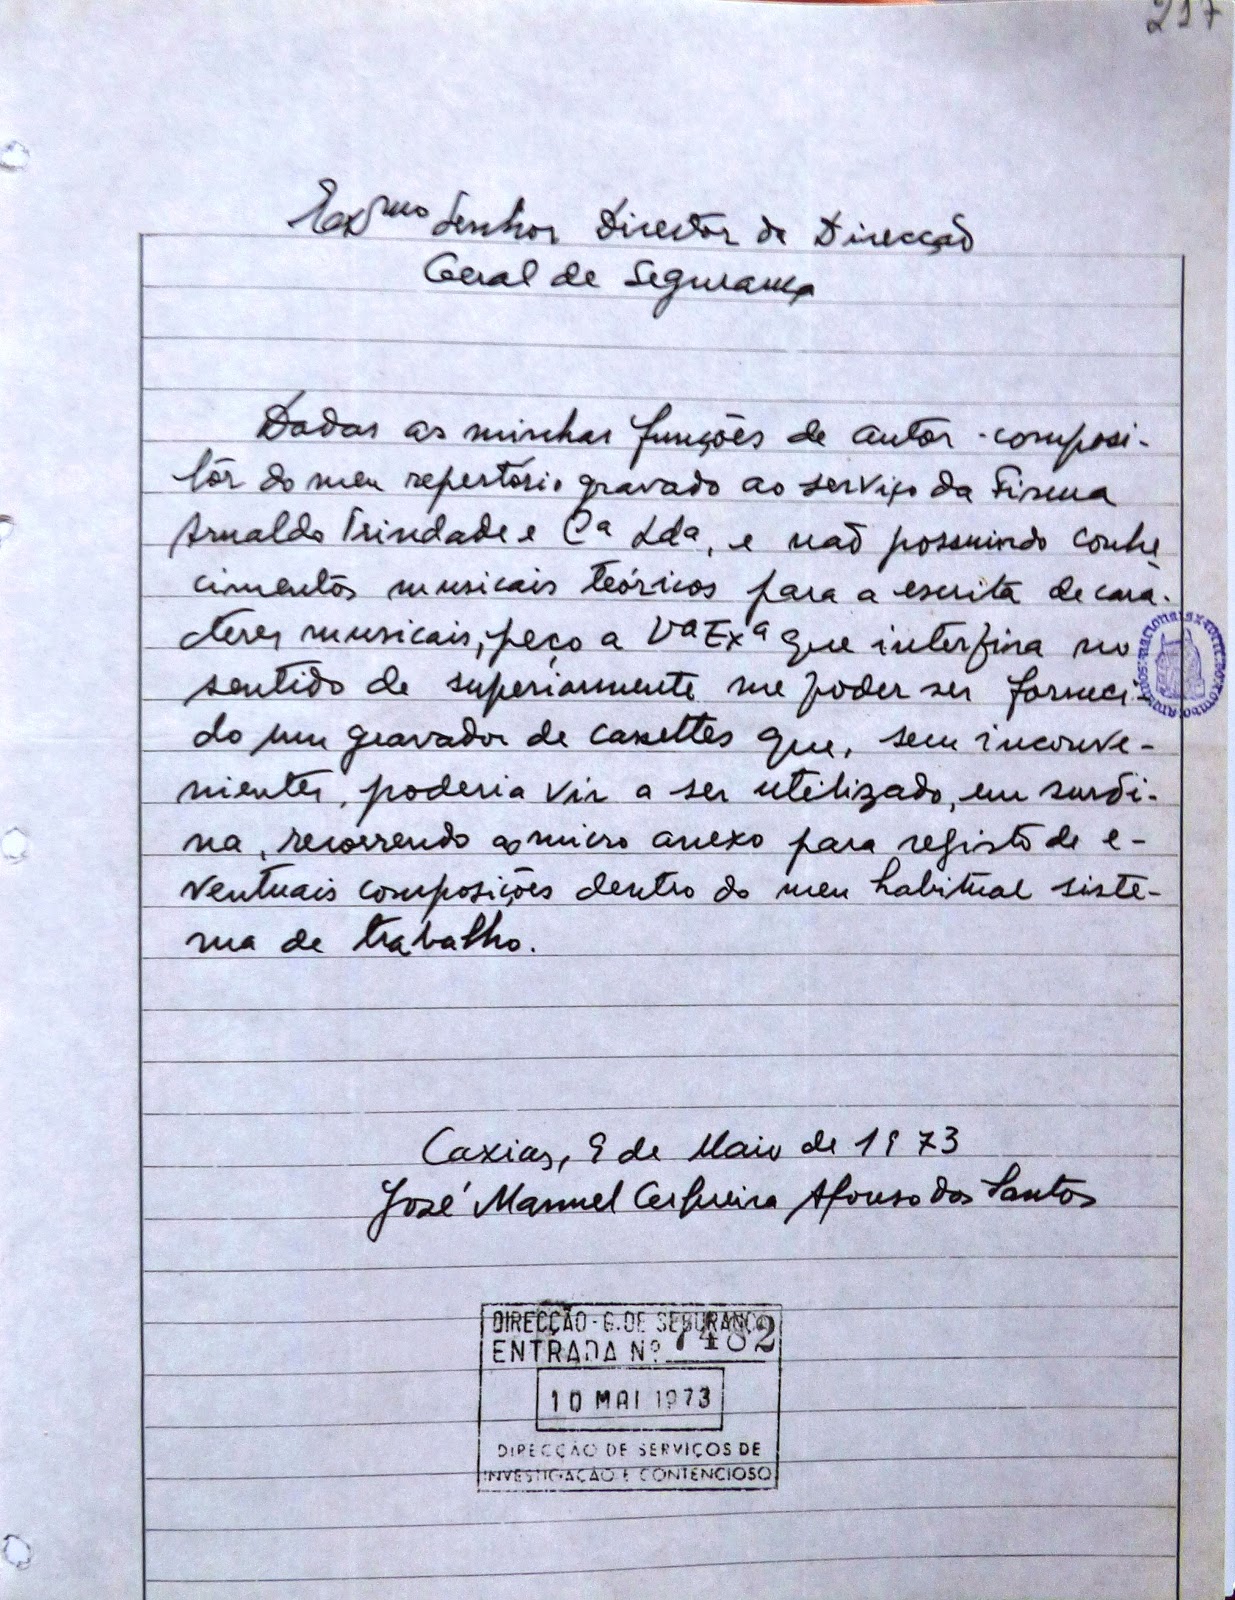 217
Exmo Senhor Director da Direcção
Geral de Segurança
Dadas as minhas funções de autor-composi-
tor do meu repertório gravado ao serviço da Firma
Arnaldo Trindade e Cª Ldª, e não possuindo conhe
cimentos musicais teóricos para a escrita de cará-
cteres musicais, peço a Vª Exª que interfira no
sentido de superiormente me poder ser forneci-
do um gravador de cassettes que, sem inconve-
nientes, poderia vir a ser utilizado, em surdi-
na, recorrendo ao micro anexo para registo de e-
ventuais composições dentro do meu habitual siste-
ma de trabalho.
Caxias, 9 de Maio de 1973
José Manuel Cerqueira Afonso dos Santos
DIRECÇÃO-G. DE SEGURANÇA
ENTRADA Nº 7482
10 MAI 1973
DIRECÇÃO DE SERVIÇOS DE
INVESTIGAÇÃO E CONTENCIOSO